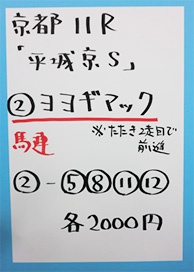 京都11R
「平城京S」
②ヨヨギマック
馬連
※たたき2走目で
前進
②-⑤⑧⑪⑫
各2000円